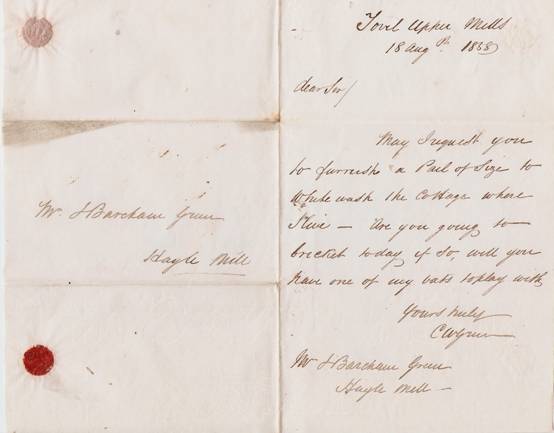 Tovil Upper Mills
18 Augst 1868
dear Sir/
May I request you
to furnish a Pail of Size to
White wash the Cottage where
I live – Are you going to
cricket today if so, will you
have one of my bats to play with
Yours truly
C W Green
Mr J Barcham Green
Hayle Mill –
Mr. J Barcham Green
Hayle Mill